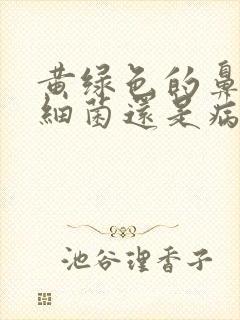 黄绿色的鼻
細菌還是病
池谷理香子